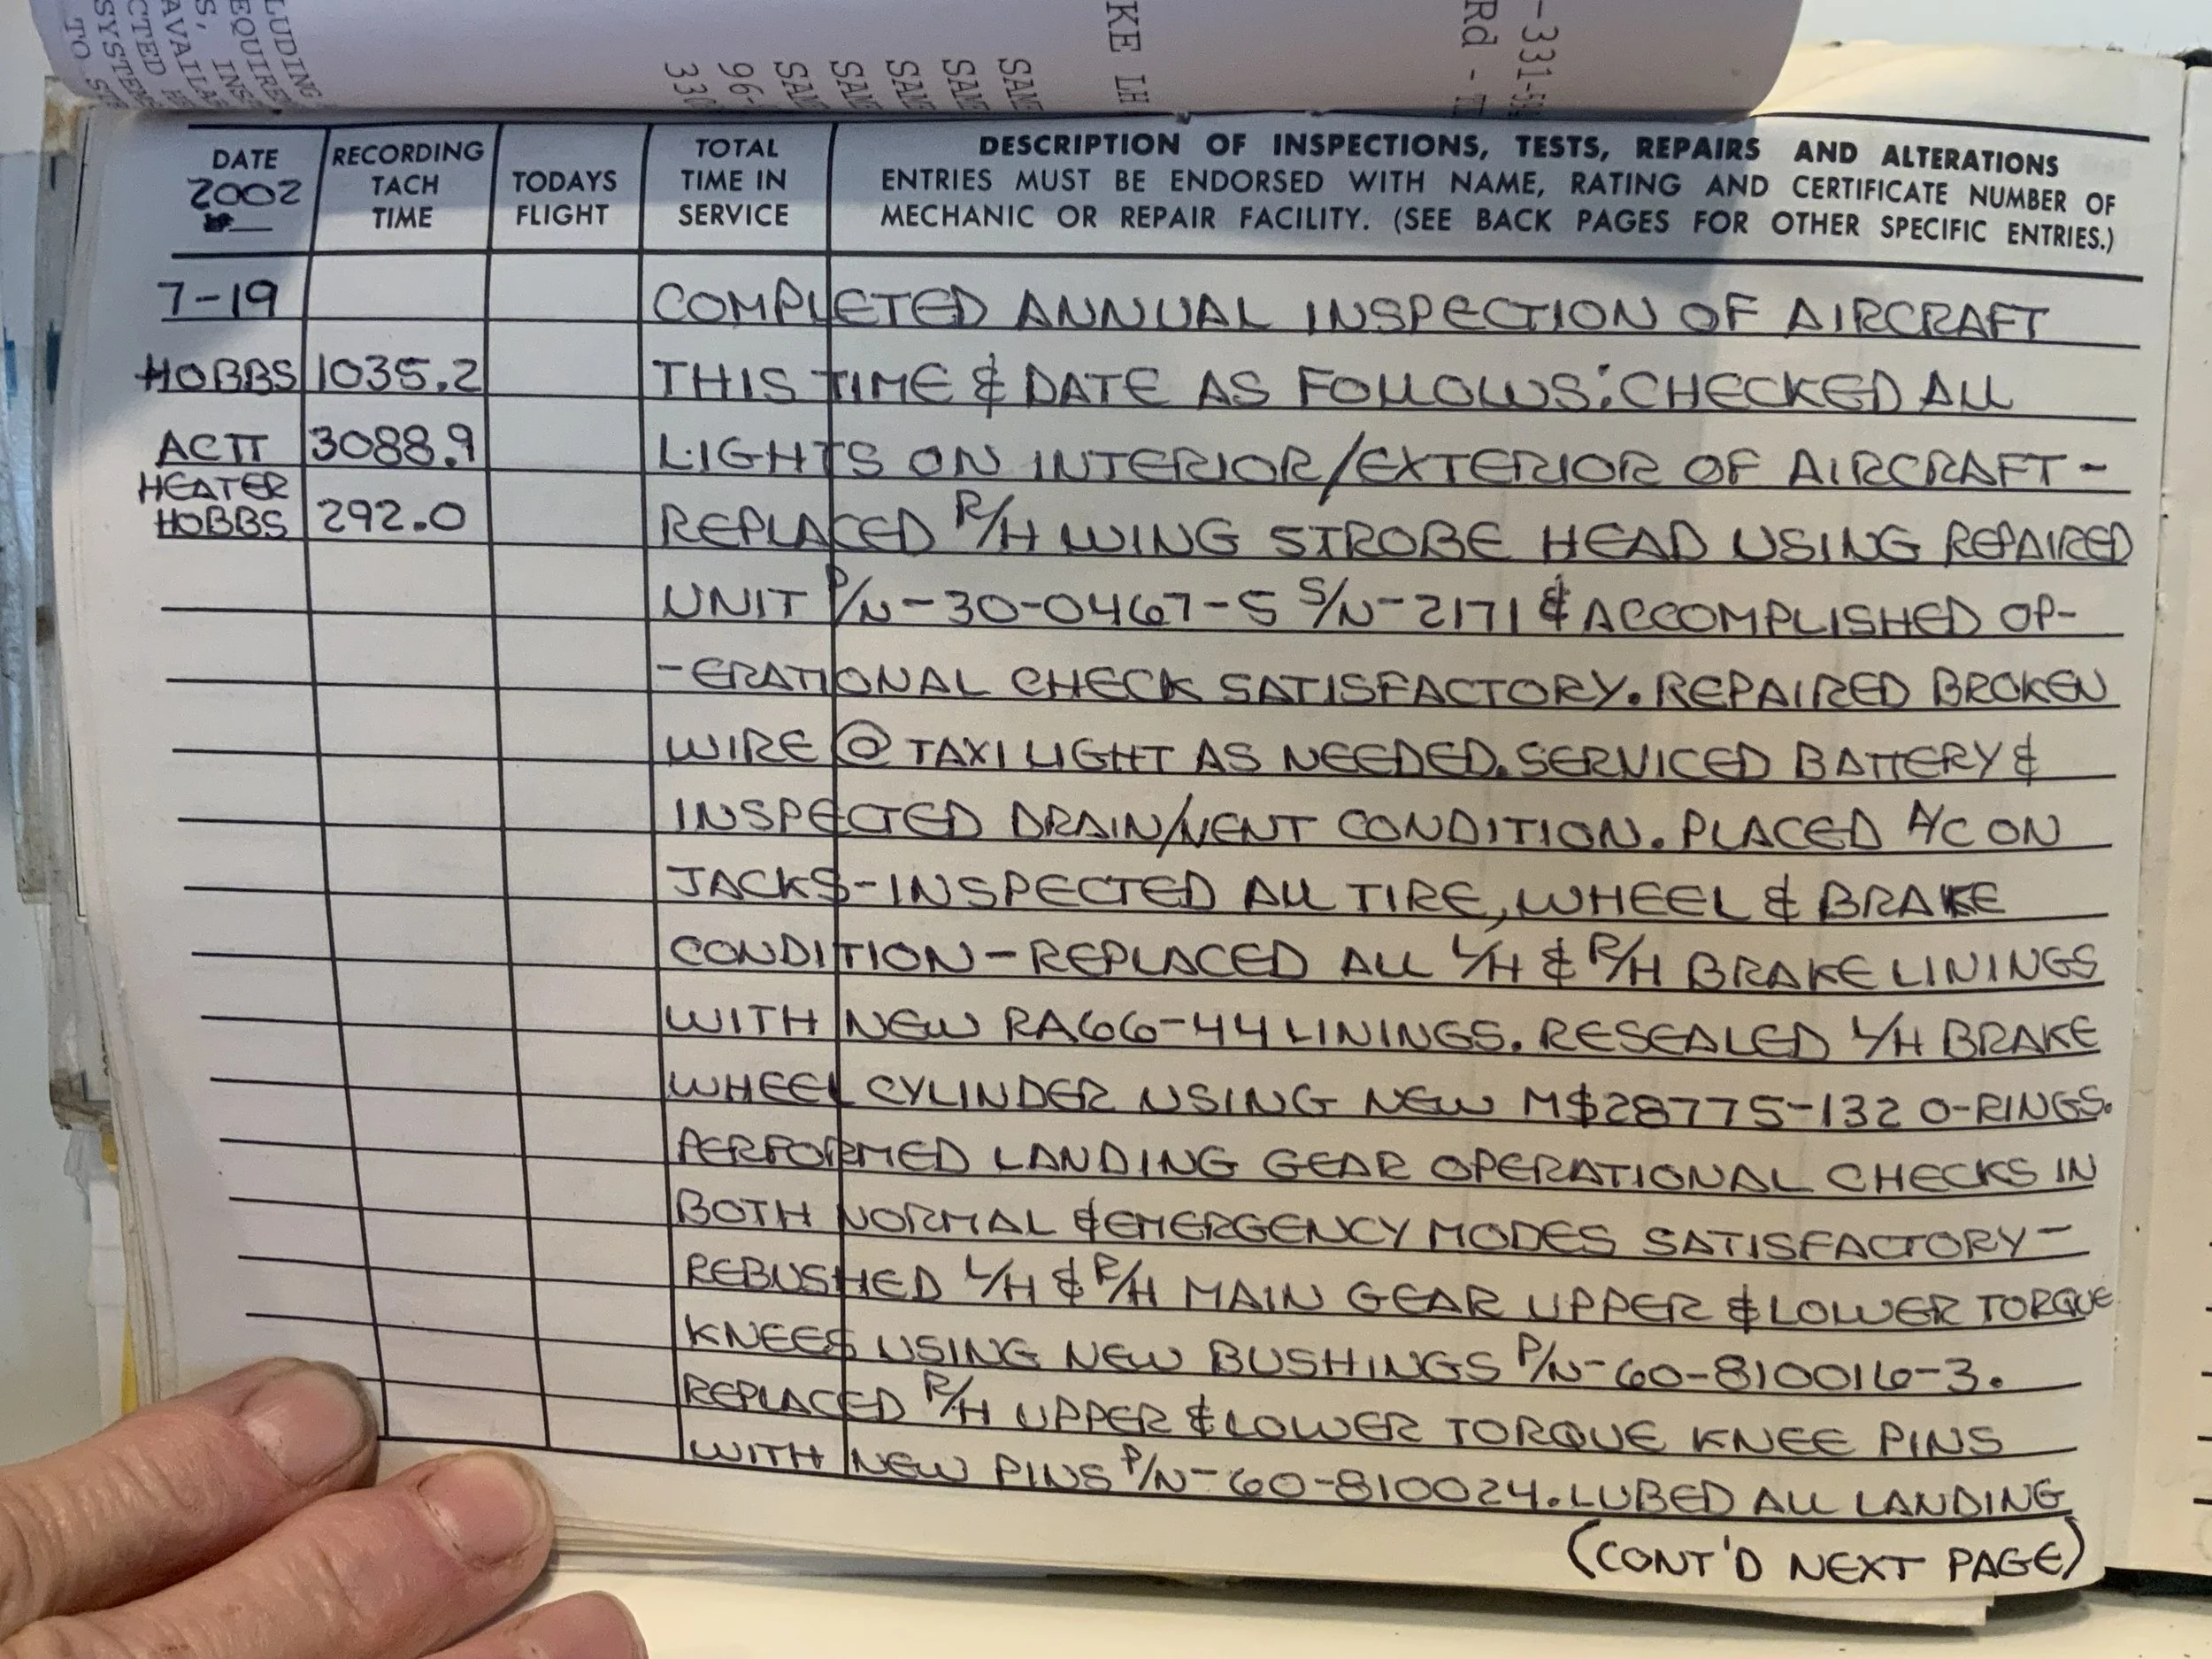 LUDING
EQUIRE
S, INS
AVAILA
CTED H
SYSTEM
TO ST
SAM
SAM
SAM
SAM
SAM
96-
330
KE LH
-331-5
Rd -
DATE
2002
RECORDING
TACH
TIME
TODAYS
FLIGHT
TOTAL
TIME IN
SERVICE
DESCRIPTION OF INSPECTIONS, TESTS, REPAIRS AND ALTERATIONS
ENTRIES MUST BE ENDORSED WITH NAME, RATING AND CERTIFICATE NUMBER OF
MECHANIC OR REPAIR FACILITY. (SEE BACK PAGES FOR OTHER SPECIFIC ENTRIES.)
7-19 COMPLETED ANNUAL INSPECTION OF AIRCRAFT
HOBBS 1035.2 THIS TIME & DATE AS FOLLOWS: CHECKED ALL
ACTT 3088.9 LIGHTS ON INTERIOR/EXTERIOR OF AIRCRAFT-
HEATER
HOBBS 292.0 REPLACED R/H WING STROBE HEAD USING REPAIRED
UNIT P/N-30-0467-5 S/N-2171 & ACCOMPLISHED OP-
-ERATIONAL CHECK SATISFACTORY. REPAIRED BROKEN
WIRE @ TAXI LIGHT AS NEEDED. SERVICED BATTERY &
INSPECTED DRAIN/VENT CONDITION. PLACED A/C ON
JACKS-INSPECTED ALL TIRE, WHEEL & BRAKE
CONDITION-REPLACED ALL L/H & R/H BRAKE LININGS
WITH NEW RA66-44 LININGS. RESEALED L/H BRAKE
WHEEL CYLINDER USING NEW MS28775-132 O-RINGS.
PERFORMED LANDING GEAR OPERATIONAL CHECKS IN
BOTH NORMAL & EMERGENCY MODES SATISFACTORY-
REBUSHED L/H & R/H MAIN GEAR UPPER & LOWER TORQUE
KNEES USING NEW BUSHINGS P/N-60-810016-3.
REPLACED R/H UPPER & LOWER TORQUE KNEE PINS
WITH NEW PINS P/N-60-810024. LUBED ALL LANDING
(CONT'D NEXT PAGE)